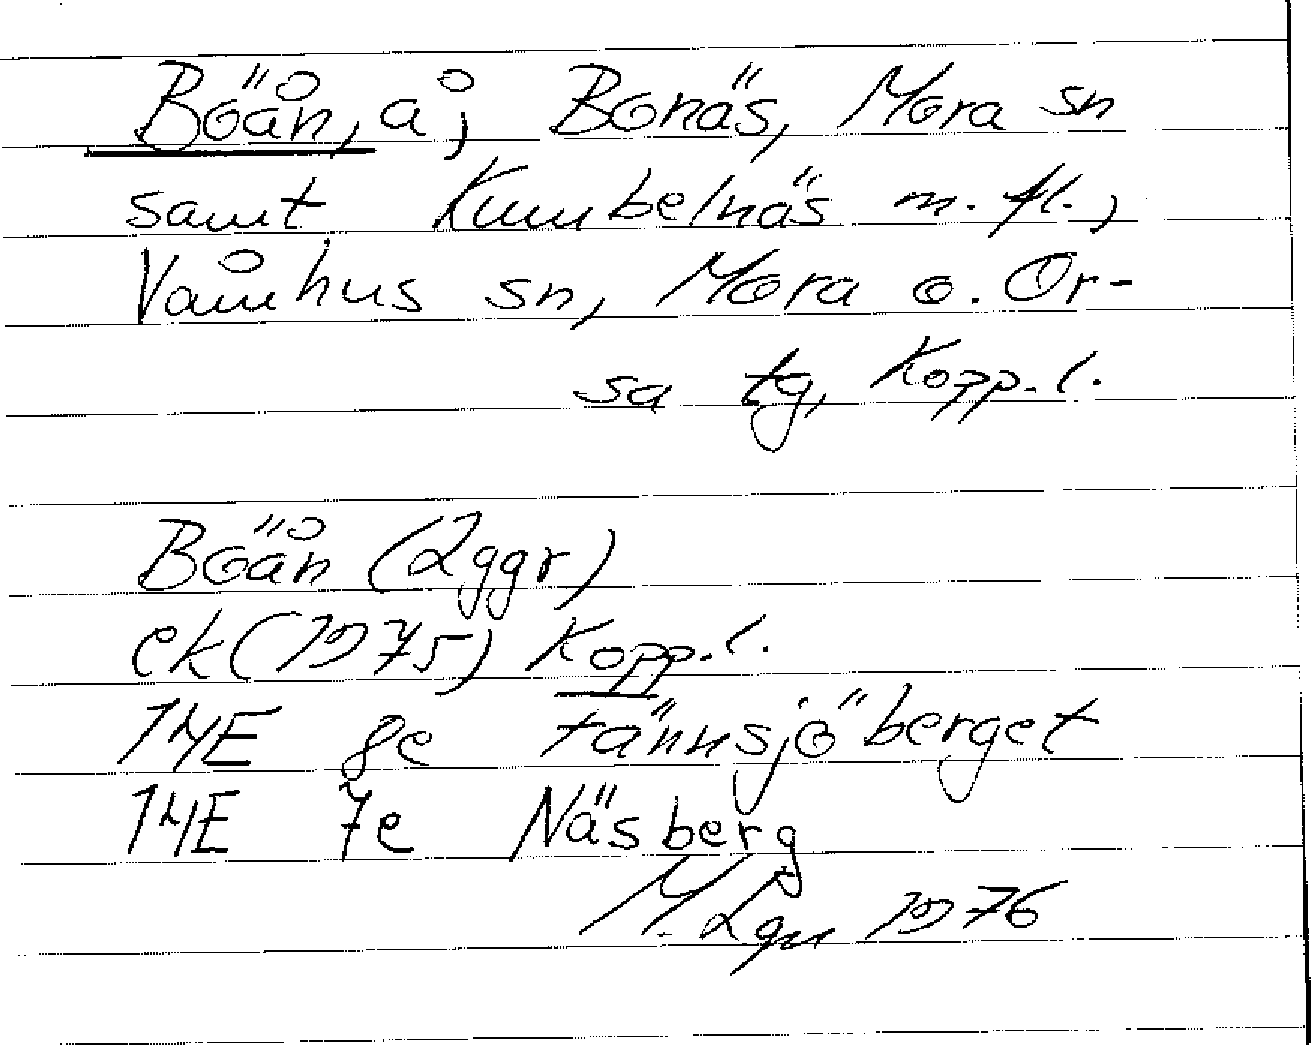 Böån, å; Bonäs, Mora sn
samt Kumbelnäs m. fl.,
Våmhus sn, Mora o. Or-
sa tg, Kopp. l.
Böån (2ggr)
ek (1975) Kopp. l.
14E 8e tännsjöberget
14E 7e Näsberg
M. Lgn 1976